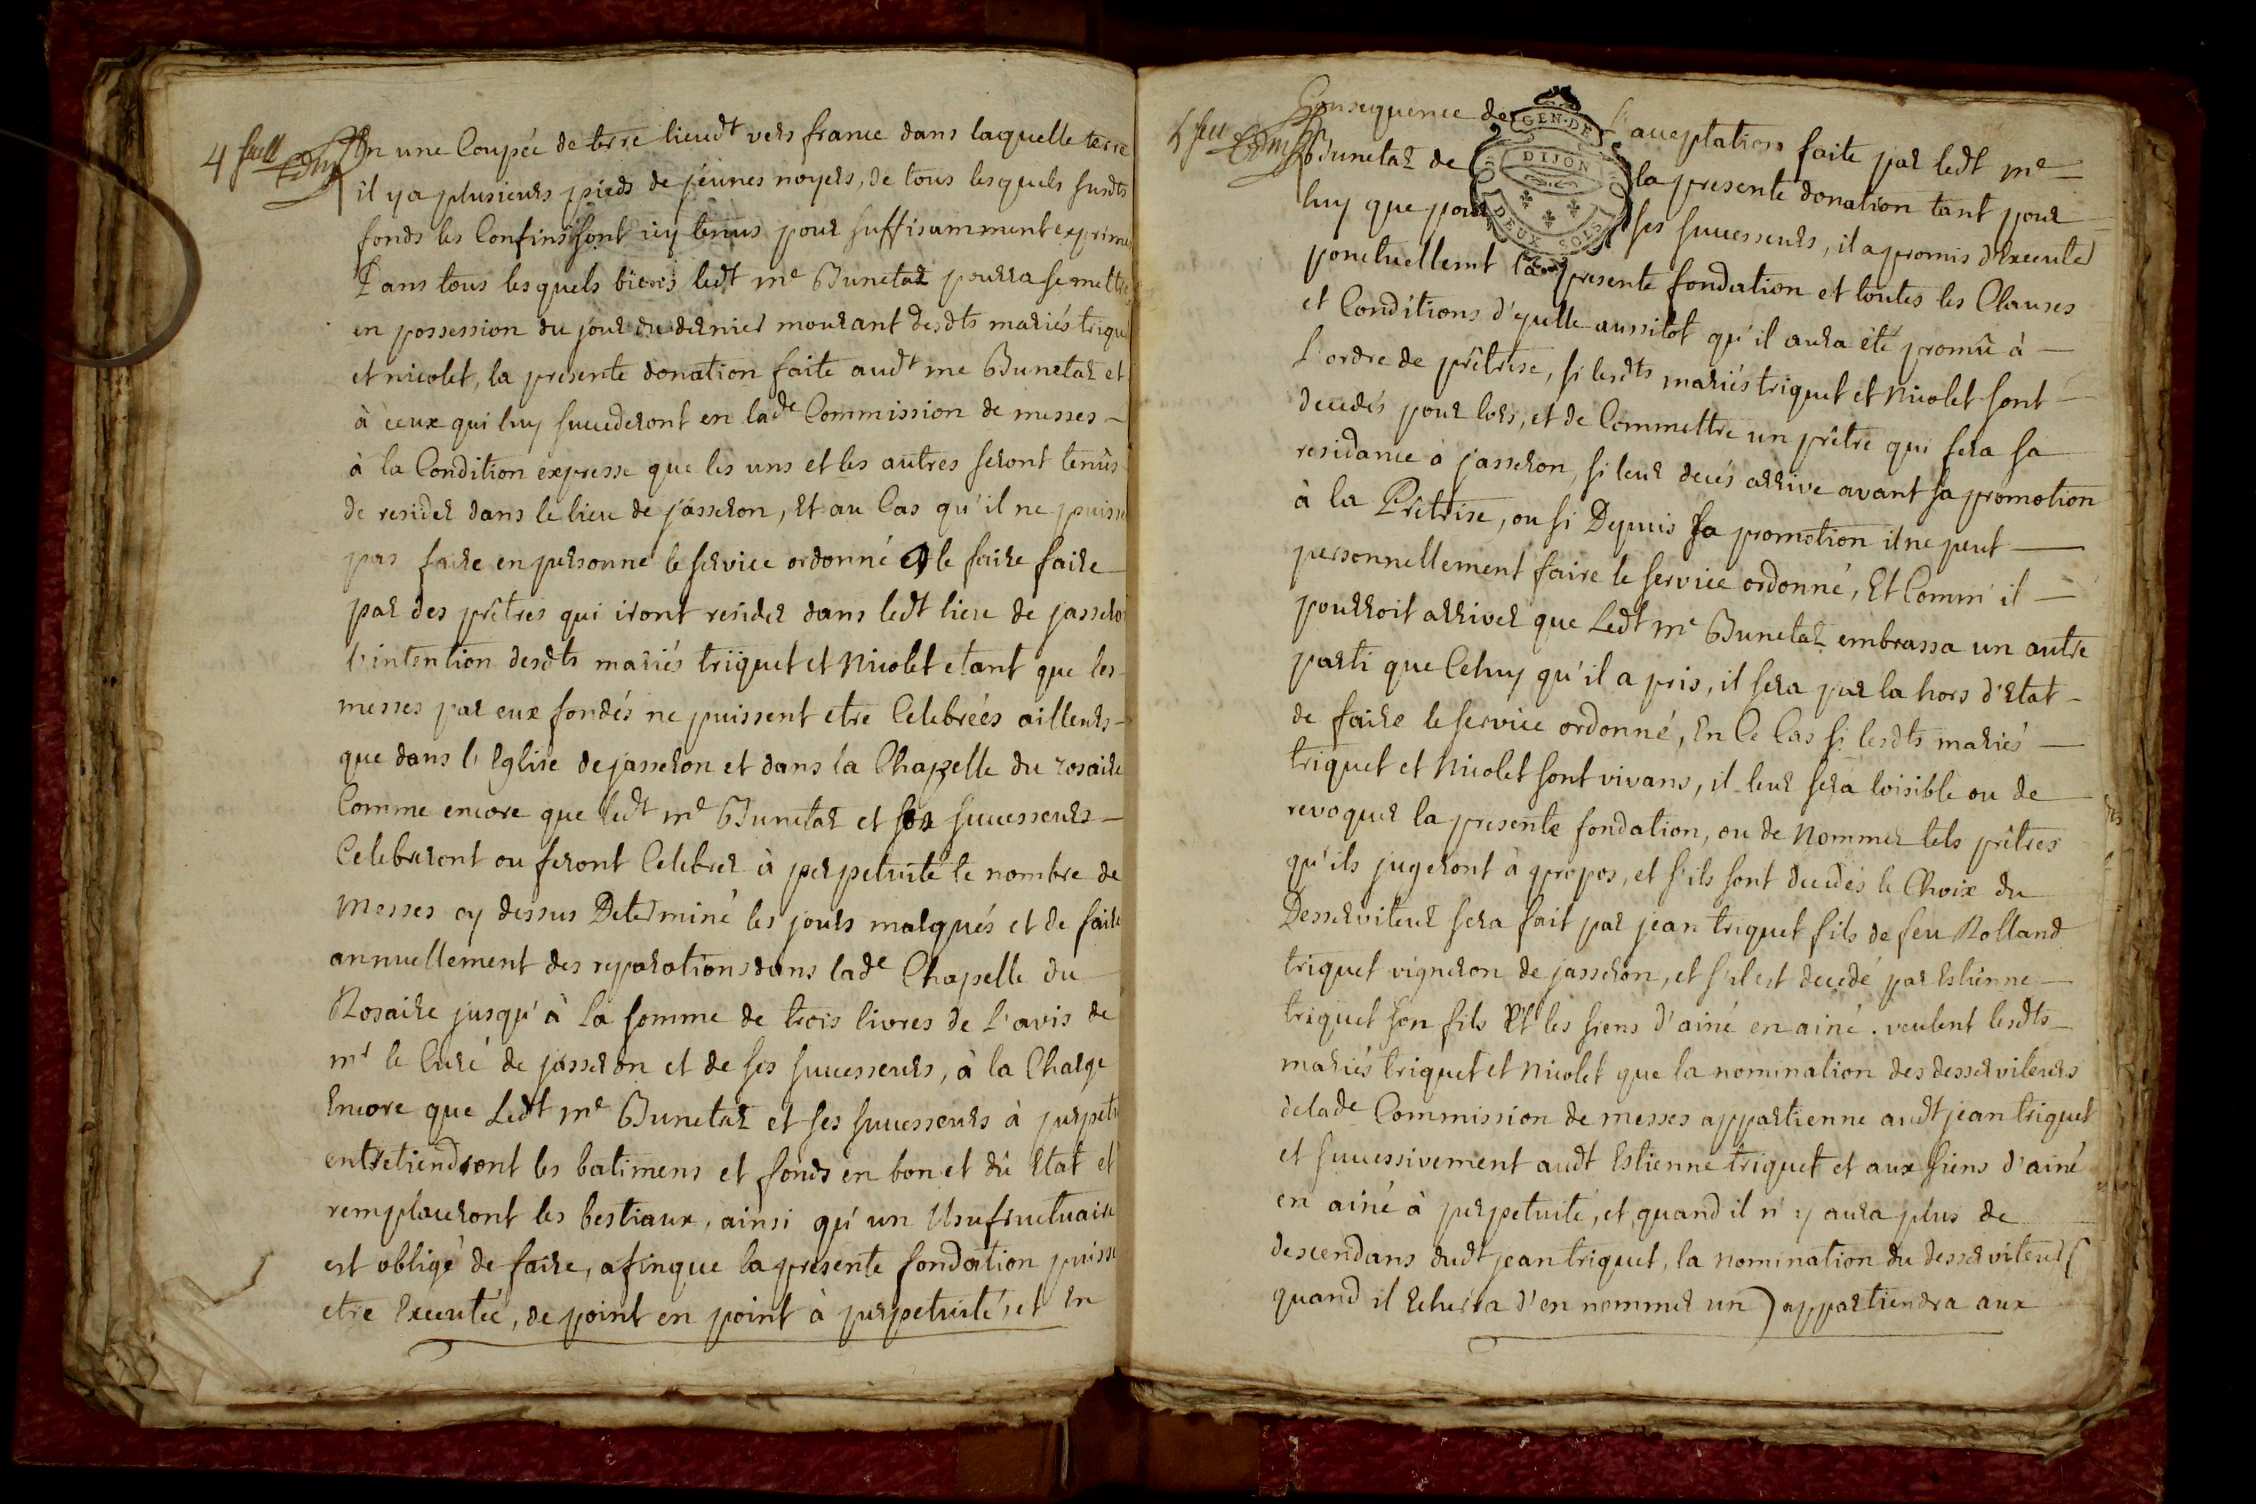 4 feull
En une Coupée de terre lieudt vers france dans laquelle terre
il y a plusieurs pieds de jeunes noyers, de tous lesquels susdts
fonds les Confins sont icy tenus pour suffisamment exprimés
Dans tous lesquels biens ledt me Bunetaz pourra se mettre
en possession du jour du dernier mourant desdts mariés triquet
et nicolet, la presente donation faite audt me Bunetaz et
à ceux qui luy succederont en lade Commission de messes –
à la Condition expresse que les uns et les autres seront tenûs
de resider dans le lieu de jasseron, Et au Cas qu'il ne puisse
pas faire en personne le service ordonné le faire faire
par des prêtres qui iront resider dans ledt lieu de jasseron
l'intention desdts mariés triquet et Nicolet etant que les
messes par eux fondés ne puissent etre Celebreés ailleurs –
que dans l'Eglise de jasseron et dans la Chapelle du rosaire
Comme encore que ledt me Bunetaz et ses successeurs –
Celebreront ou feront Celebrer à perpetuité le nombre de
Messes cy dessus Determiné les jours marqués et de faire
annuellement des reparations dans lade Chapelle du
Rosaire jusqu'à la somme de trois livres de l'avis de
mr le Curé de jasseron et de ses successeurs, à la Charge
Encore que Ledt me Bunetaz et ses successeurs à perpetu
entretiendront les batimens et fonds en bon et dû Etat et
remplaceront les bestiaux, ainsi qu'un Usufructuaire
est obligé de faire, afinque la presente fondation puisse
etre Executée, de point en point à perpetuité, et En
5 feu
Consequence de l'acceptation faite par ledt me
Bunetaz de la presente donation tant pour
luy que pour ses successeurs, il a promis d'Executer
ponctuellemt la presente fondation et toutes les Clauses
et Conditions d'ycelle aussitot qu'il aura été promû à
L'ordre de prêtrise, si lesdts mariés triquet et Nicolet sont
decedés pour lors, et de Commettre un prêtre qui fera sa
residance à jasseron, si leur decés arrive avant sa promotion
à la Prêtrise, ou si Depuis sa promotion il ne peut
personnellement faire le service ordonné, Et Comm' il
pourroit arriver que Ledt me Bunetaz embrassa un autre
parti que Celuy qu'il a pris, il sera par la hors d'Etat
de faire le service ordonné, En Ce Cas si lesdts mariés
triquet et Nicolet sont vivans, il leur sera loisible ou de
revoquer la presente fondation, ou de Nommer tels prêtres
qu'ils jugeront à propos, et s'ils sont decedés le Choix du
Desserviteur sera fait par jean triquet fils de feu Rolland
triquet vigneron de jasseron, et s'il est decedé par Estienne
triquet son fils Et les siens d'ainé en ainé. veulent lesdts
mariés triquet et Nicolet que la nomination des desserviteurs
delade Commission de messes appartienne audt jean triquet
et successivement audt Estienne triquet et aux siens d'ainé
en ainé à perpetuité, et quand il n'y aura plus de
descendans dudt jean triquet, la nomination du desserviteur (
quand il Echerra d'en nommer un) appartiendra aux
GEN·DE
DIJON
DEUX SOLS